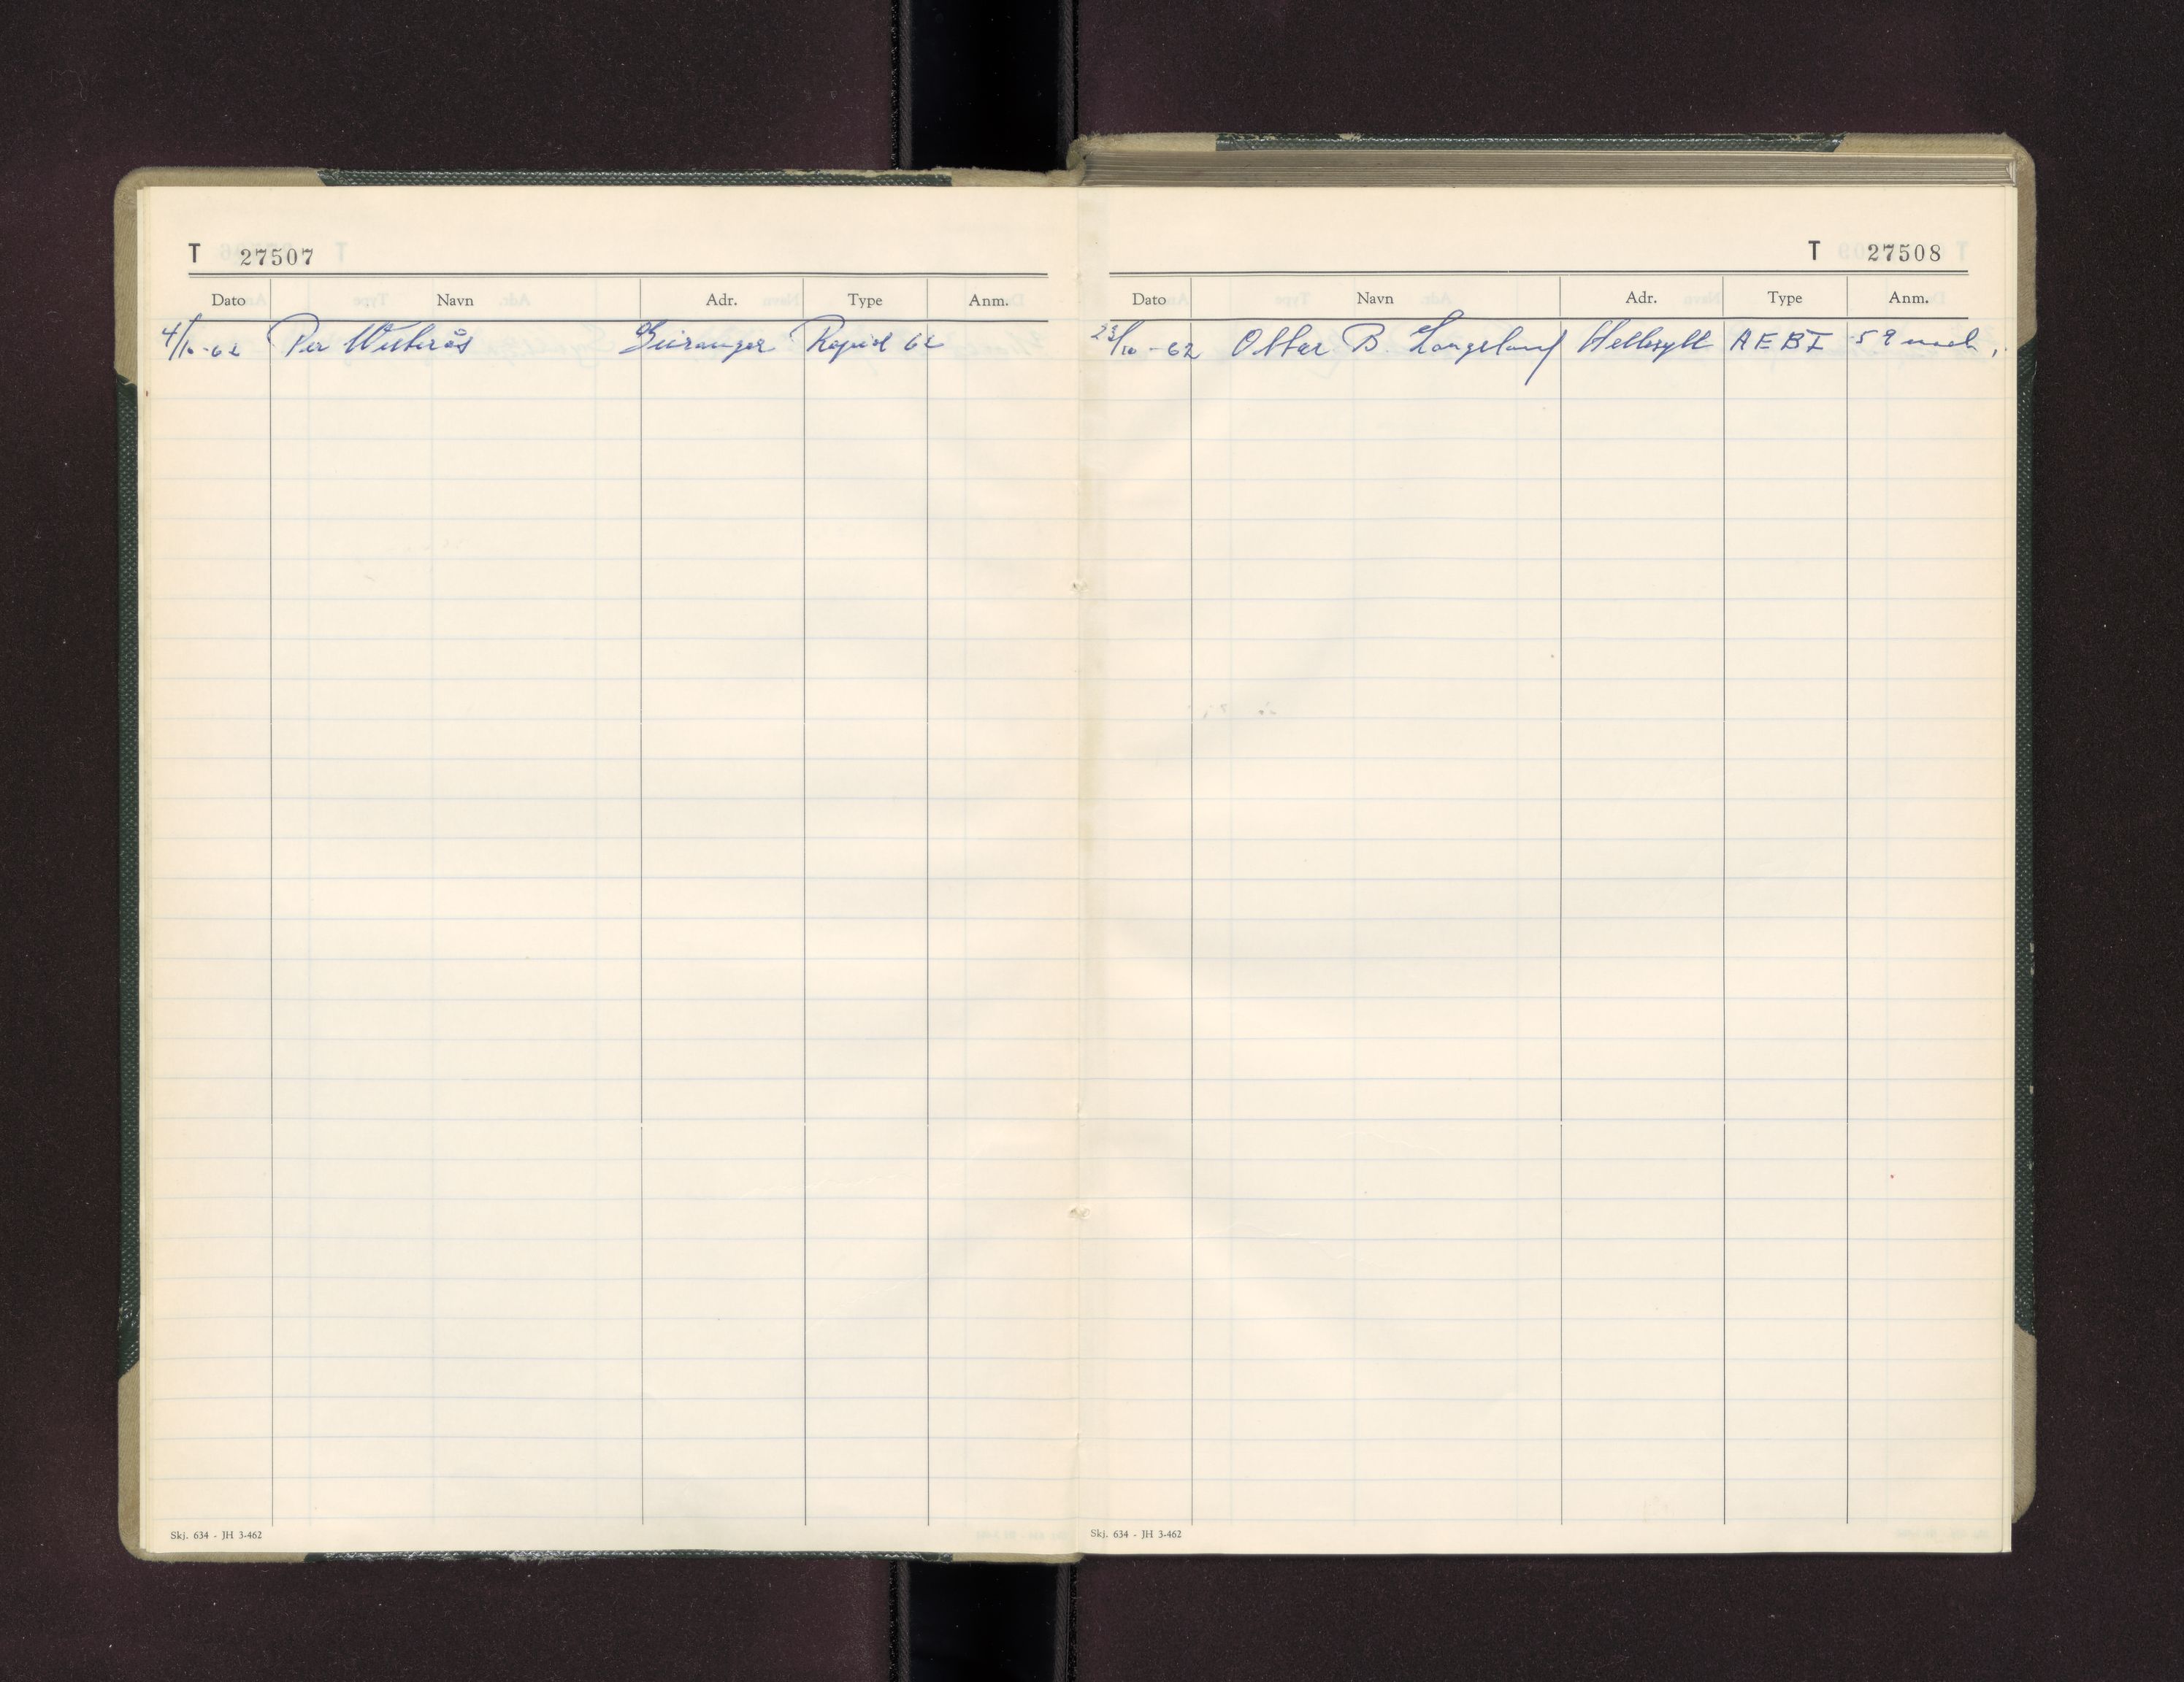 T 27507
Dato Navn Adr. Type Anm.
4/10-62 Per Westerås Geiranger Rapid 62
Skj. 634 - JH 3-462
T 27508
Dato Navn Adr. Type Anm.
23/10-62 Ottar B. Langeland Hellesylt AEBI 59 mod.
Skj. 634 - JH 3-462